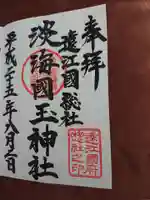 奉拝
遠江國総社
淡海國玉神社
平成二十五年八月二日